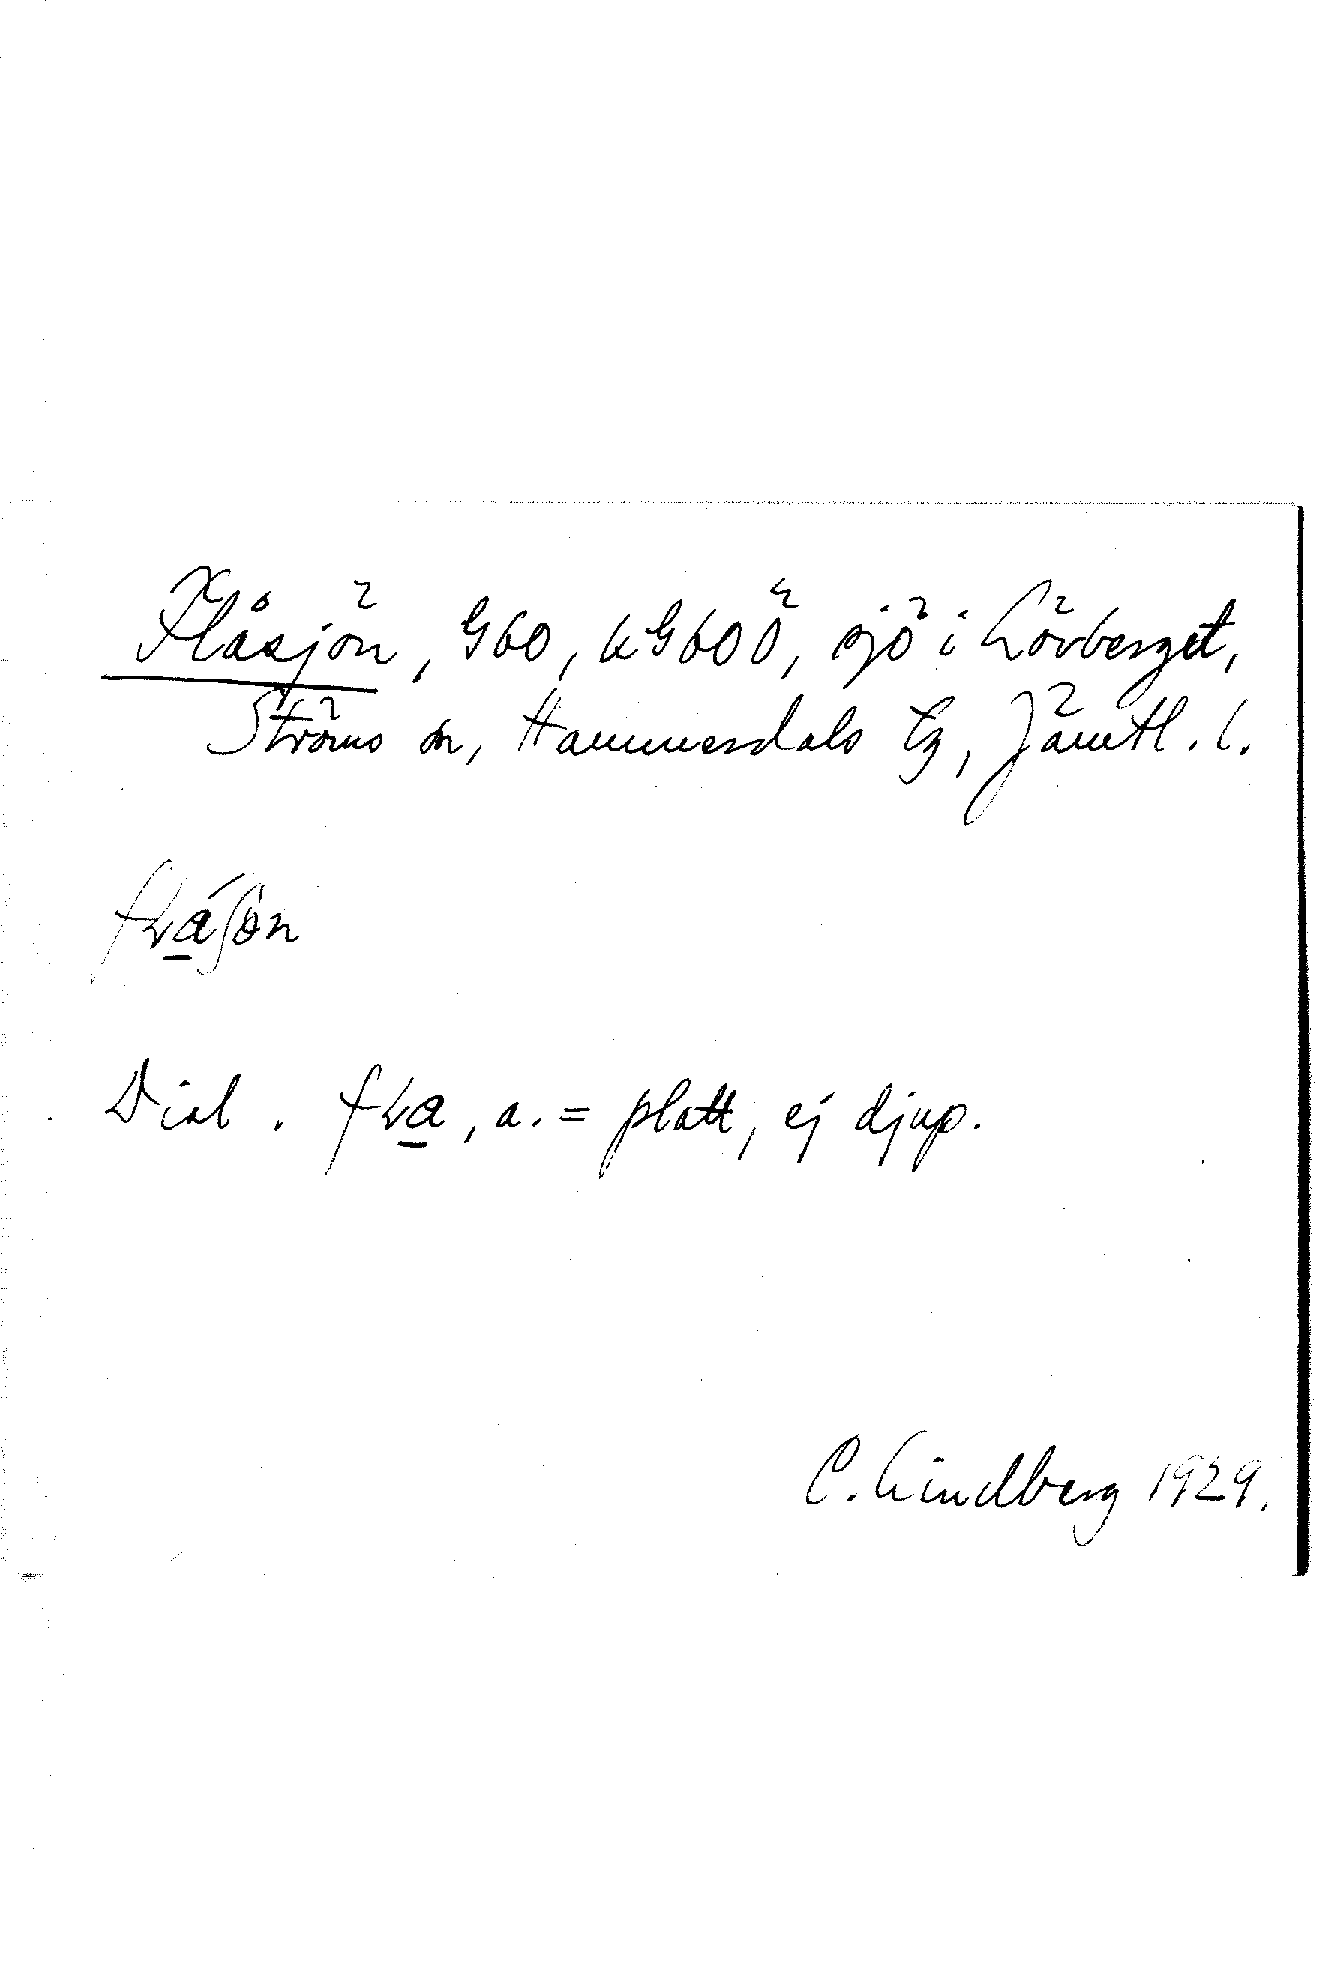 Flåsjön, G60, kG60Ö, sjö i Lövberget,
Ströms sn, Hammerdals tg, Jämtl. l.
fʟa̱ʃön
Dial. fʟa̱, a. = platt, ej djup.
C. Lindberg 1929.